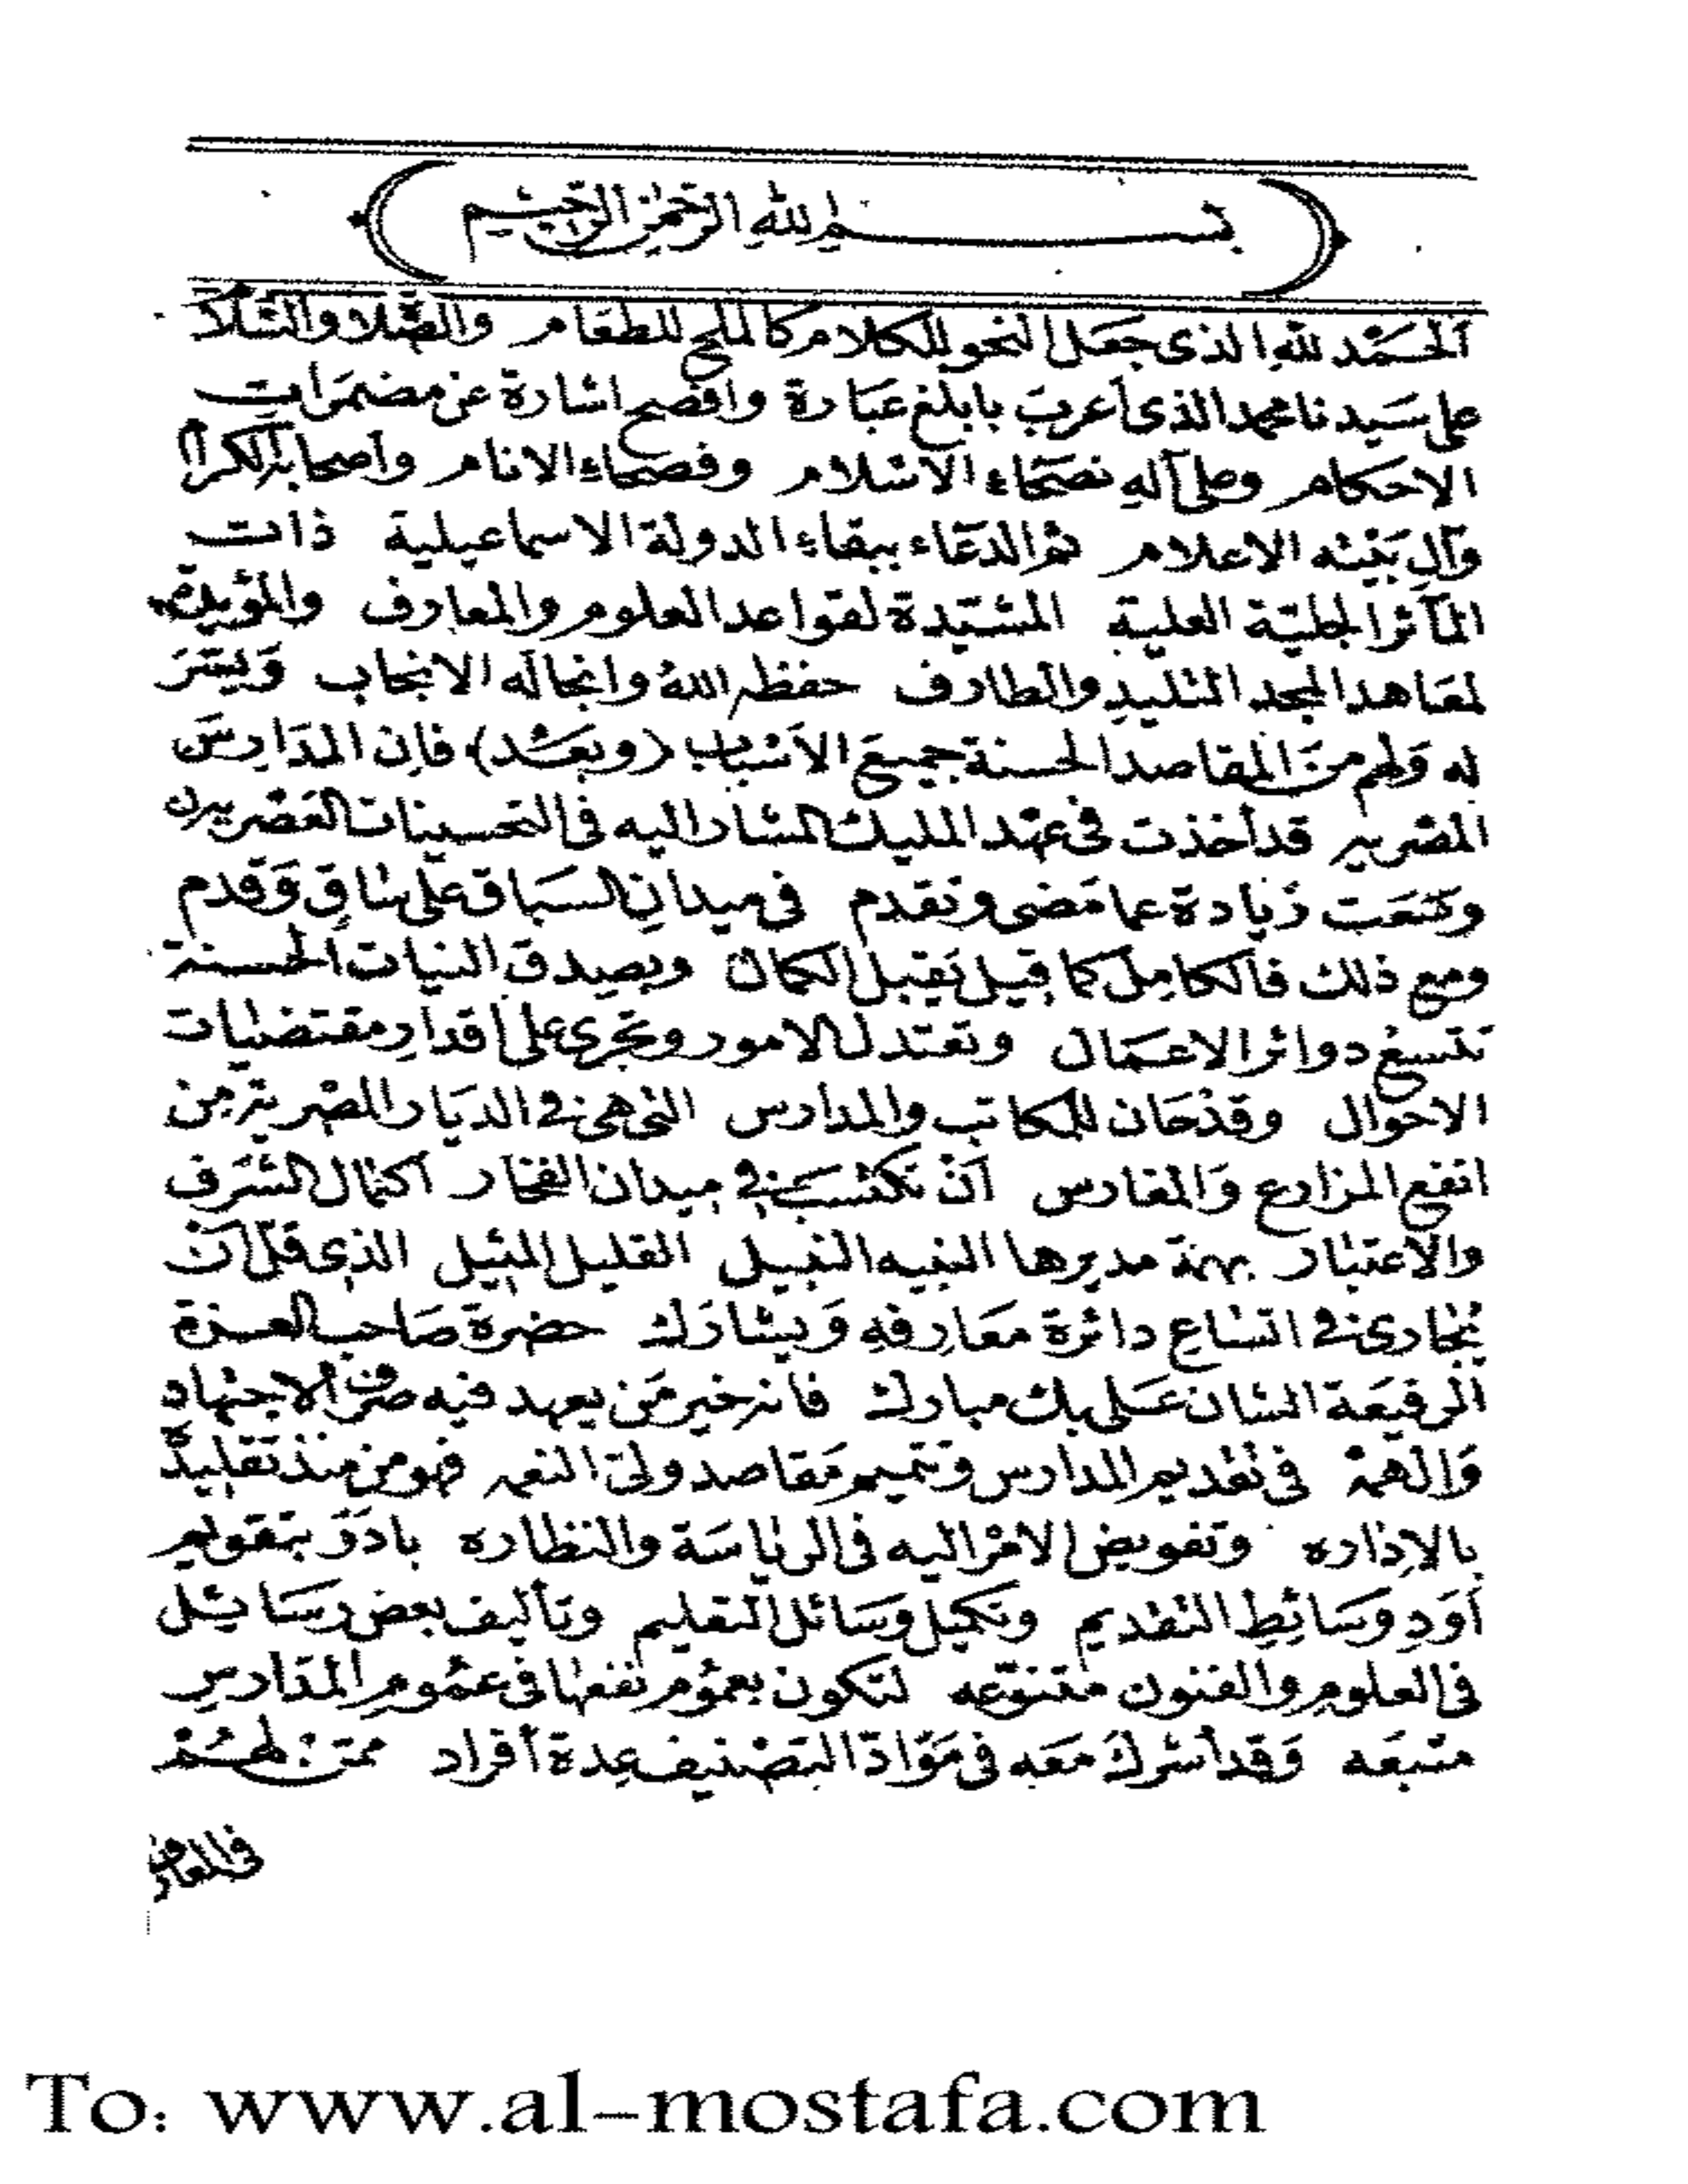 بسم الله الرحمن الرحيم
اَلحَمْد للهِ الذى جعَل النحو للكلام كالملح للطعَام والصّلاة والسّلاَ
على سَيدنا محمد الذى أعربَ بابلغ عبَارة وافصح اشارة عن مضمَرات
الاحكام وعلى آلهِ نصَحَاء الاسْلام وفصحاء الانام وأصحابه الكرا
وآلِ بَيْته الاعلام ثم الدعَاء ببقاء الدولة الاسماعيلية ذات
المآثر الجليّة العلية المشيّدة لقواعد العلوم والمعارف والمؤيدة
لمعَاهد المجد التليدِ والطارف حفظه اللهُ وانجاله الانجاب وَيسّرَ
له وَلهم منَ المقاصد الحسنة جميعَ الأسْباب (وبعْد) فإن المدَارِسَ
المصْريه قد أخذت فى عهْد المليك المشار اليه فى التحسينات العَصْريه
وسَعَت زيادة عما مَضى وتقدم فى ميدانِ السبَاق على سَاقٍ وَقدم
ومع ذلك فالكامِل كما قيل يَقبل الكمال وبصِدق النيات الحسنة
تتسع دوائر الاعمَال وتعتدل الامور وتجرى على اقدار مقتضيات
الاحوال وقدْ حَان للمكاتب والمدارس التى هى فى الديَار المصْرية من
انفع المزارع وَالمغارس أنْ تكتسبَ فى ميدان الفخار اكتمال الشرَف
والاعتبار بهمة مديرها النبيه النبيل القليل المثيل الذى قلّ أنْ
يُجارى فى اتسَاعِ دائرة معَارِفهِ وَيشارَك حضرة صَاحب العزة
الرفيعَة الشان عَلى بك مبارك فانه خير مَن يعهد فيه صرْف الاجتهاد
وَالهمة فى تقديم المدارس وتتميم مَقاصد ولىّ النعم فهو من منذ تقليدُه
بالإداره وتفويض الامْر اليه فى الريَاسَة والنظاره بادَرَ بتقويم
أوَدِ وسَائِطِ التقديم وتكميل وسَائل التعليم وتأليف بعض رسَايل
فى العلوم والفنون متنوّعه لتكون بعمُوم نفعها فى عمُوم المدَارس
متبعَه وَقد أشركَ معَه فى مَوَادّ التصْنيف عِدة أفراد ممن لهُمْ
فى المعارف
To: www.al-mostafa.com